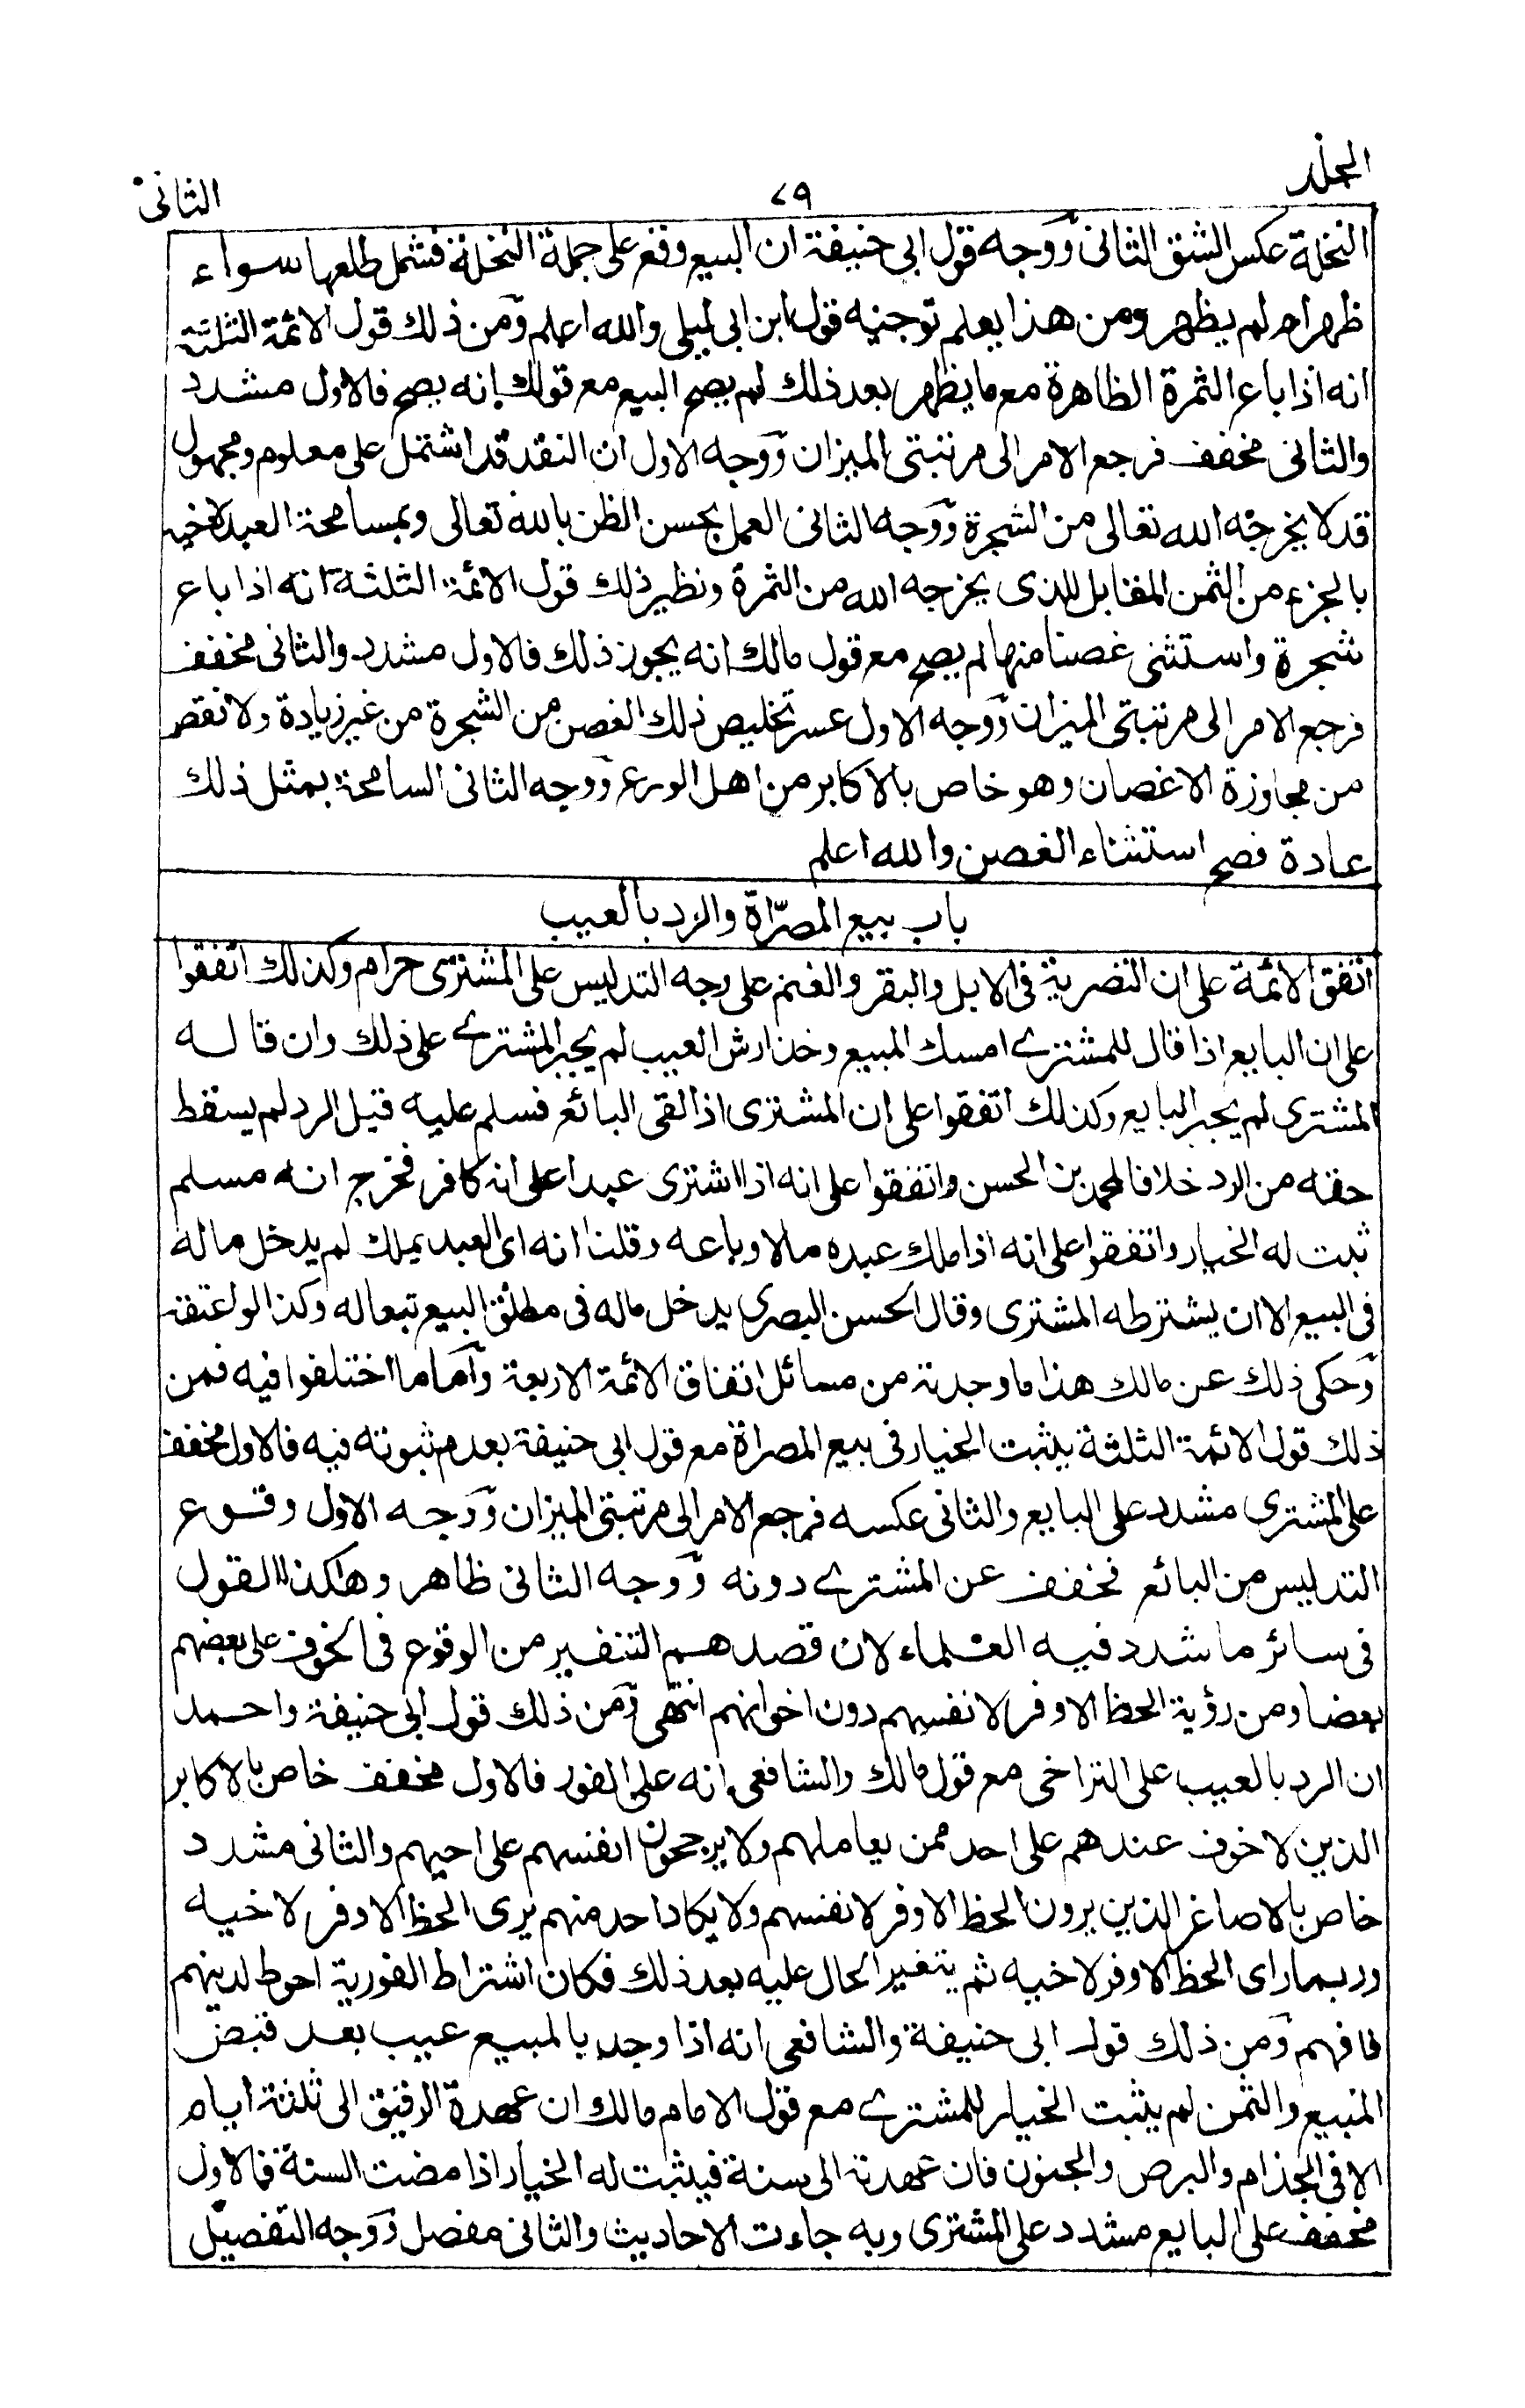 المجلد
٧٩
الثانی
النخلة عکس الشق الثانی ووجه قول ابی حنیفة ان البیع وقع علی جملة النخلة فشمل طلعها سواء
ظهر ام لم یظهر ومن هذا یعلم توجیه قول ابن ابی لیلی والله اعلم ومن ذلك قول الائمة الثلثة
انه اذا باع الثمرة الظاهرة مع ما یظهر بعد ذلك لم یصح البیع مع قول مالك انه یصح فالاول مشدد
والثانی مخفف فرجع الامر الی مرتبتی المیزان ووجه الاول ان النقد قد اشتمل علی معلوم ومجهول
قد لا یخرجه الله تعالی من الشجرة ووجه الثانی العمل بحسن الظن بالله تعالی وبمسامحة العبد لاخیه
بالجزء من الثمن المقابل للذی یخرجه الله من الثمرة ونظیر ذلك قول الائمة الثلثة انه اذا باع
شجرة واستثنی غصنا منها لم یصح مع قول مالك انه یجوز ذلك فالاول مشدد والثانی مخفف
فرجع الامر الی مرتبتی المیزان ووجه الاول عسر تخلیص ذلك الغصن من الشجرة من غیر زیادة ولا نقص
من مجاوزة الاغصان وهو خاص بالاکابر من اهل الورع ووجه الثانی السامحة بمثل ذلك
عادة فصح استثناء الغصن والله اعلم
باب بیع المصرّاة والرد بالعیب
اتفق الائمة علی ان التصریة فی الابل والبقر والغنم علی وجه التدلیس علی المشتری حرام وکذلك اتفقوا
علی ان البایع اذا قال للمشتری امسك المبیع وخذ ارش العیب لم یجبر المشتری علی ذلك وان قاله
المشتری لم یجبر البایع وکذلك اتفقوا علی ان المشتری اذا لقی البائع فسلم علیه قبل الرد لم یسقط
حقه من الرد خلافا لمحمد بن الحسن واتفقوا علی انه اذا اشتری عبدا علی انه کافر فخرج انه مسلم
ثبت له الخیار واتفقوا علی انه اذا ملك عبده مالا وباعه وقلنا انه ای العبد یملك لم یدخل ماله
فی البیع الا ان یشترطه المشتری وقال الحسن البصری یدخل ماله فی مطلق البیع تبعا له وکذا لو اعتقه
وحکی ذلك عن مالك هذا ما وجدته من مسائل اتفاق الائمة الاربعة وأما ما اختلفوا فیه فمن
ذلك قول الائمة الثلثة یثبت الخیار فی بیع المصراة مع قول ابی حنیفة بعدم ثبوته فیه فالاول مخفف
علی المشتری مشدد علی البایع والثانی عکسه فرجع الامر الی مرتبتی المیزان ووجه الاول وقوع
التدلیس من البائع فخفف عن المشتری دونه ووجه الثانی ظاهر وهاکذا القول
فی سائر ما شدد فیه العلماء لان قصدهم التنفیر من الوقوع فی الخوف علی بعضهم
بعضا ومن رؤیة الحظ الاوفر لانفسهم دون اخوانهم انتهی ومن ذلك قول ابی حنیفة واحمد
ان الرد بالعیب علی التراخی مع قول مالك والشافعی انه علی الفور فالاول مخفف خاص بالاکابر
الذین لا خوف عندهم علی احد ممن یعاملهم ولا یرجحون انفسهم علی اخیهم والثانی مشدد
خاص بالاصاغر الذین یرون الحظ الاوفر لانفسهم ولا یکاد احد منهم یری الحظ الاوفر لاخیه
وربما رای الحظ الاوفر لاخیه ثم یتغیر الحال علیه بعد ذلك فکان اشتراط الفوریة احوط لدینهم
فافهم ومن ذلك قول ابی حنیفة والشافعی انه اذا وجد بالمبیع عیب بعد قبض
المبیع والثمن لم یثبت الخیار للمشتری مع قول الامام مالك ان عهدة الرقیق الی ثلثة ایام
الا فی الجذام والبرص والجنون فان عهدته الی سنة فیثبت له الخیار اذا مضت السنة فالاول
مخفف علی البایع مشدد علی المشتری وبه جاءت الاحادیث والثانی مفصل ووجه التفصیل